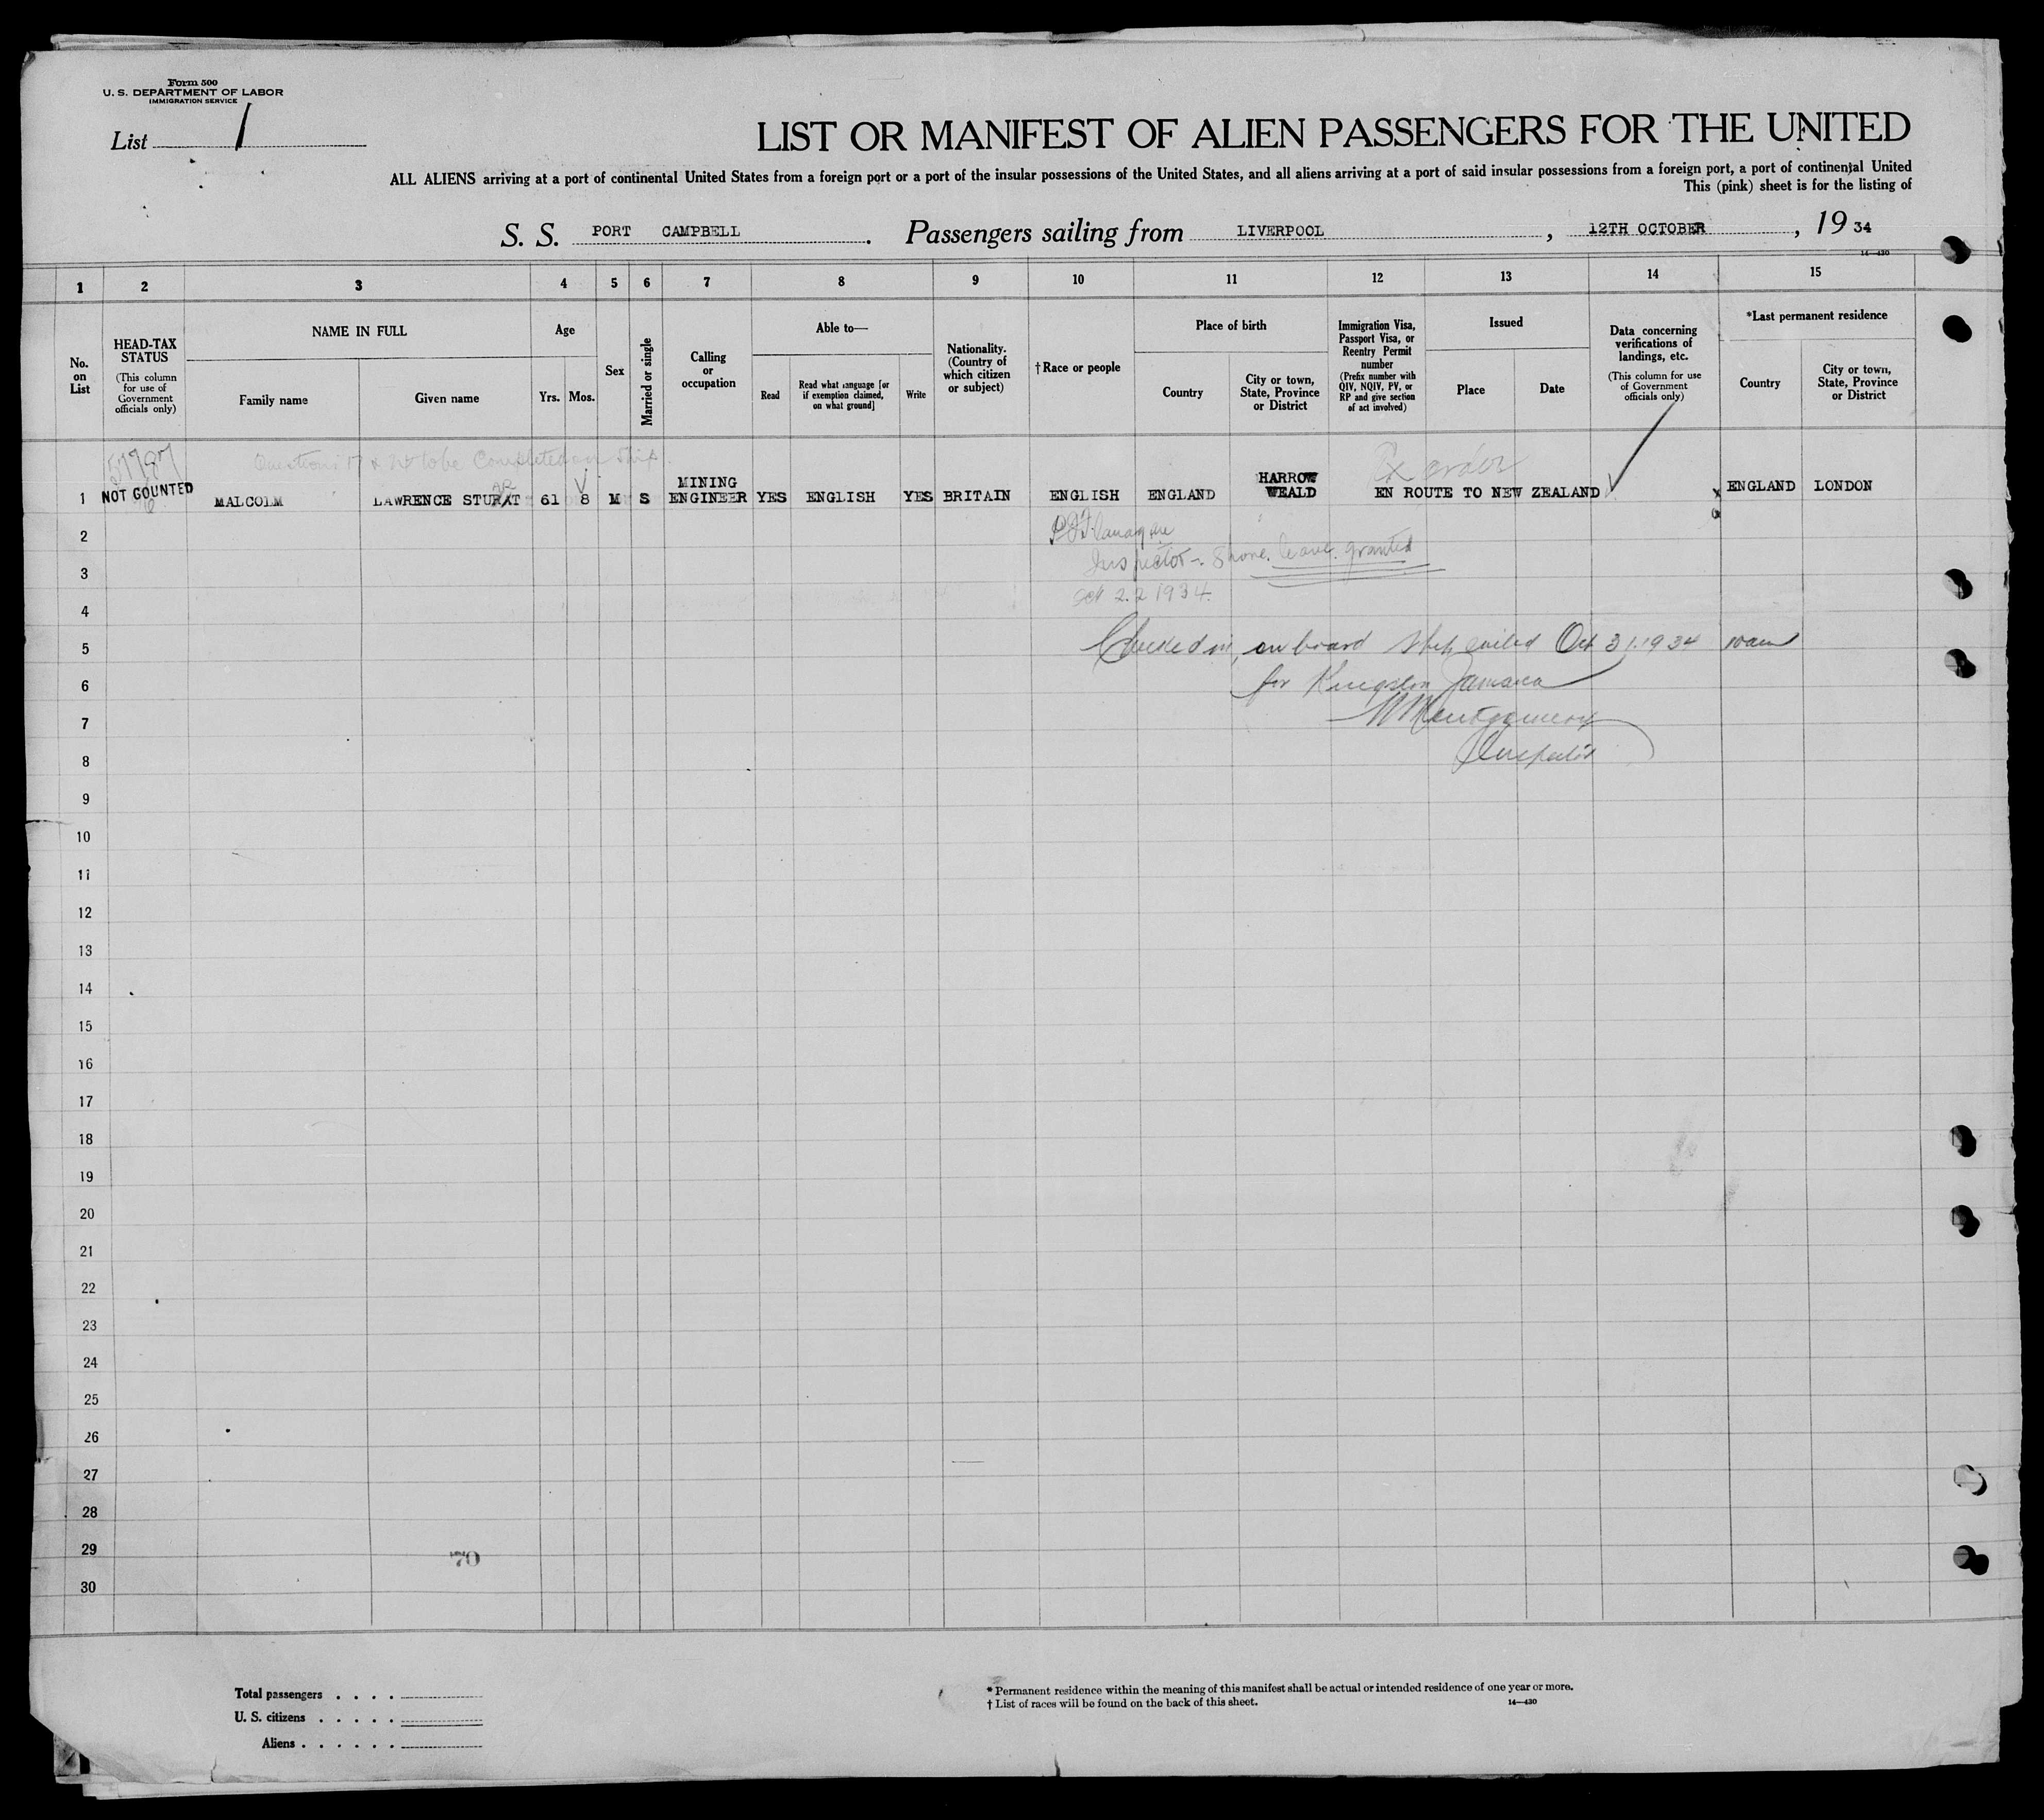 Form 500
U. S. DEPARTMENT OF LABOR
IMMIGRATION SERVICE
List 1
LIST OR MANIFEST OF ALIEN PASSENGERS FOR THE UNITED
ALL ALIENS arriving at a port of continental United States from a foreign port or a port of the insular possessions of the United States, and all aliens arriving at a port of said insular possessions from a foreign port, a port of continental United
This (pink) sheet is for the listing of
S. S. PORT CAMPBELL. Passengers sailing from LIVERPOOL, 12TH OCTOBER, 19 34
14—430
1 2 3 4 5 6 7 8 9 10 11 12 13 14 15
No. on List
HEAD-TAX STATUS
(This column for use of Government officials only)
NAME IN FULL
Family name
Given name
Age
Yrs. Mos.
Sex
Married or single
Calling or occupation
Able to—
Read
Read what language [or if exemption claimed, on what ground]
Write
Nationality. (Country of which citizen or subject)
†Race or people
Place of birth
Country
City or town, State, Province or District
Immigration Visa, Passport Visa, or Reentry Permit number
(Prefix number with QIV, NQIV, PV, or RP and give section of act involved)
Issued
Place
Date
Data concerning verifications of landings, etc.
(This column for use of Government officials only)
*Last permanent residence
Country
City or town, State, Province or District
Questions 17 & 24 to be Completed on Ship.
Ex order
1 NOT COUNTED MALCOLM LAWRENCE STURAT 61 8 M S MINING ENGINEER YES ENGLISH YES BRITAIN ENGLISH ENGLAND HARROW WEALD EN ROUTE TO NEW ZEALAND ENGLAND LONDON
2
3 Inspector-. Shore. leave. granted
4 Oct 22 1934.
5 Checked in, on board ship sailed Oct 31.1934 10am
6 for Kingston Jamaica
7 Montgomery
8 Inspector
9
10
11
12
13
14
15
16
17
18
19
20
21
22
23
24
25
26
27
28
29
70
30
Total passengers . . . .
U. S. citizens . . . . .
Aliens . . . . . .
* Permanent residence within the meaning of this manifest shall be actual or intended residence of one year or more.
† List of races will be found on the back of this sheet.
14—430